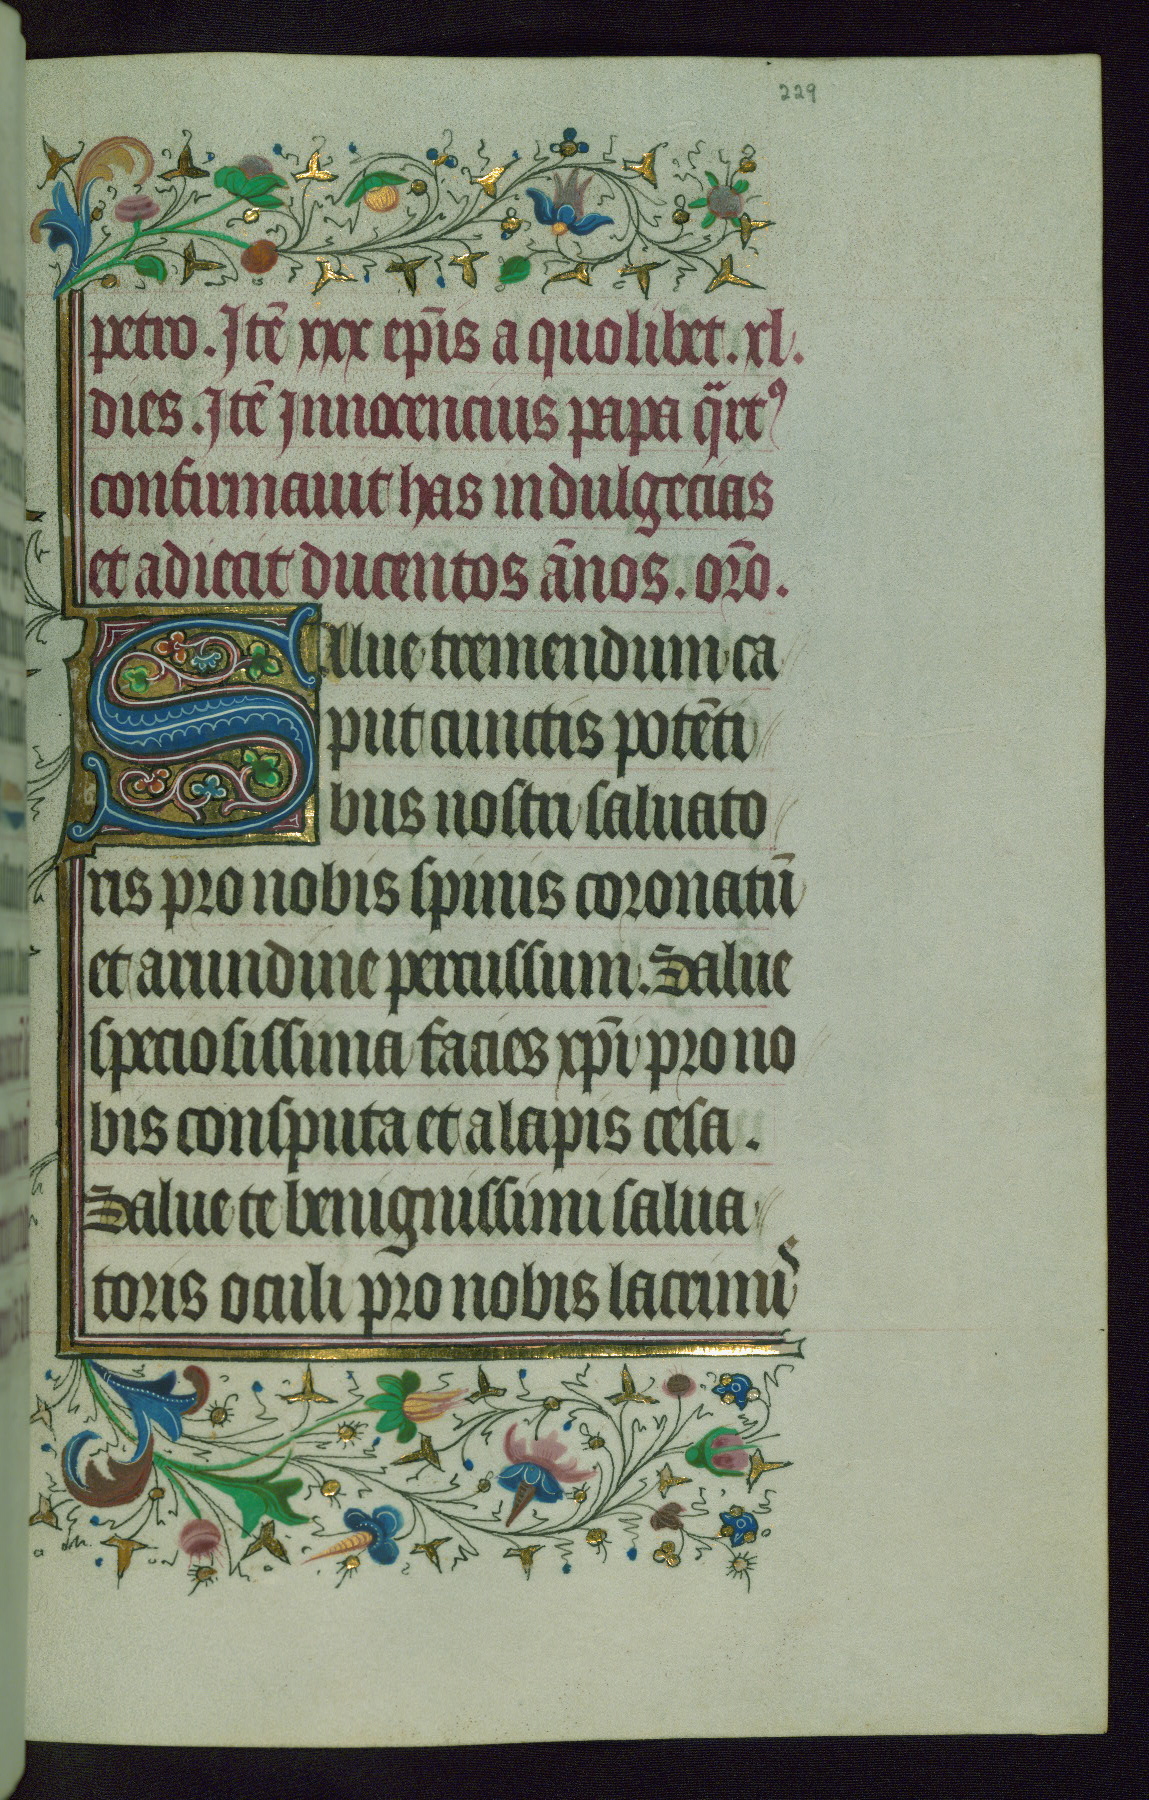 229
petro. Itē xxx ep̄is a quolibet. xl.
dies. Itē Innocencius papa q̈rtꝰ
confirmauit has indulgēcias
et adiecit ducentos ān̄os. or̄o.
Salue tremendum ca
put cunctis potēti
bus nostri saluato
ris pro nobis spinis coronatū
et arundine percussum. Salue
speciosissima facies xp̄i pro no
bis consputa et alapis cesa.
Salue te benignissimi salua
toris oculi pro nobis lacrimis